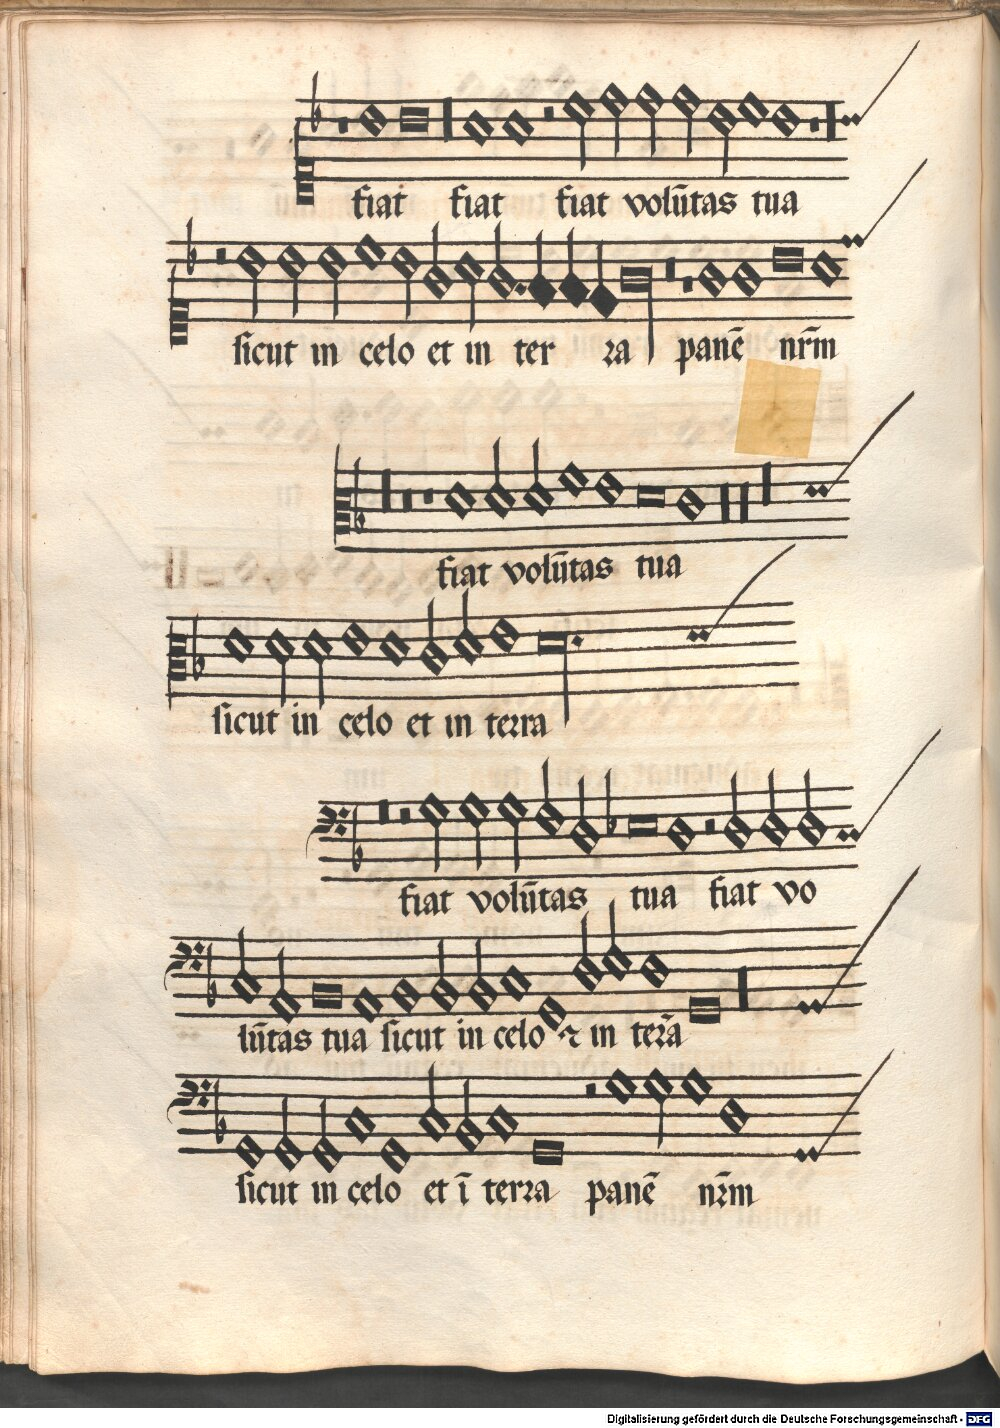 fiat fiat fiat volūtas tua
sicut in celo et in ter ra panē nr̄m
fiat volūtas tua
sicut in celo et in terra
fiat volūtas tua fiat vo
lūtas tua sicut in celo ⁊ in terr̄a
sicut in celo et ī terra panē nr̄m
Digitalisierung gefördert durch die Deutsche Forschungsgemeinschaft - DFG